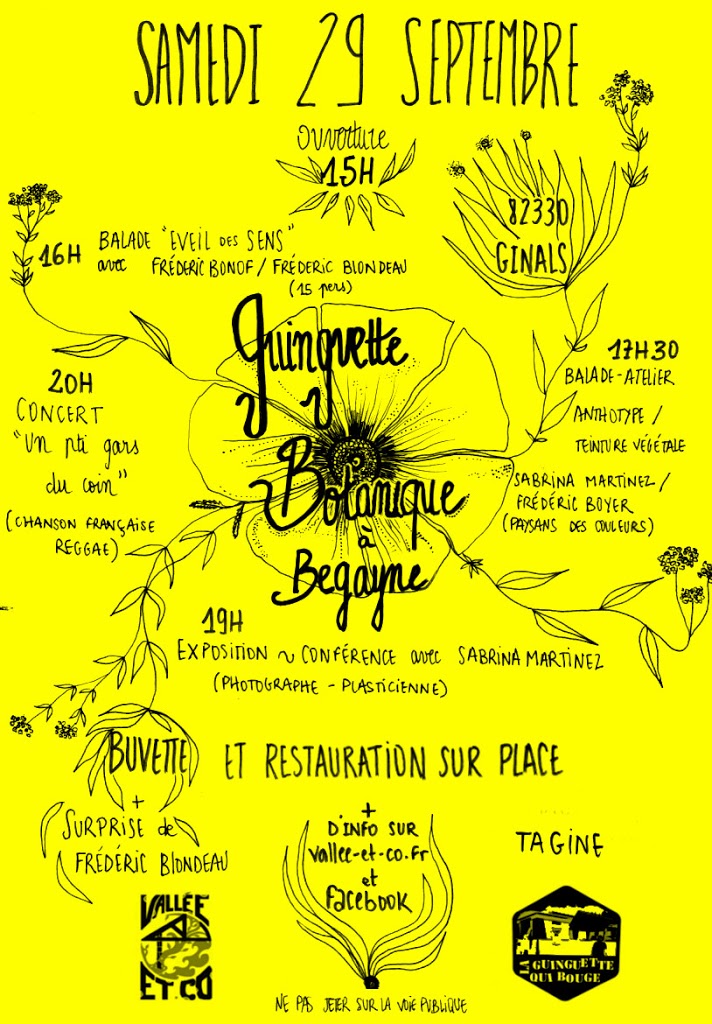 SAMEDI 29 SEPTEMBRE
ouverture
15H
82330
GINALS
16H BALADE "EVEIL des SENS"
avec FRÉDERIC BONOF / FRÉDERIC BLONDEAU
(15 pers)
Guinguette
Botanique
à
Begayne
17H30
BALADE-ATELIER
ANTHOTYPE /
TEINTURE VÉGÉTALE
SABRINA MARTINEZ /
FRÉDÉRIC BOYER
(PAYSANS DES COULEURS)
20H
CONCERT
"Un pti gars
du coin"
(CHANSON FRANÇAISE
REGGAE)
19H
EXPOSITION ~ CONFÉRENCE avec SABRINA MARTINEZ
(PHOTOGRAPHE - PLASTICIENNE)
BUVETTE ET RESTAURATION SUR PLACE
+
SURPRISE de
FRÉDÉRIC BLONDEAU
+
D'INFO SUR
vallee-et-co.fr
et
facebook
TAGINE
VALLÉE
ET.CO
LA GUINGUETTE
QUI BOUGE
NE PAS JETER SUR LA VOIE PUBLIQUE